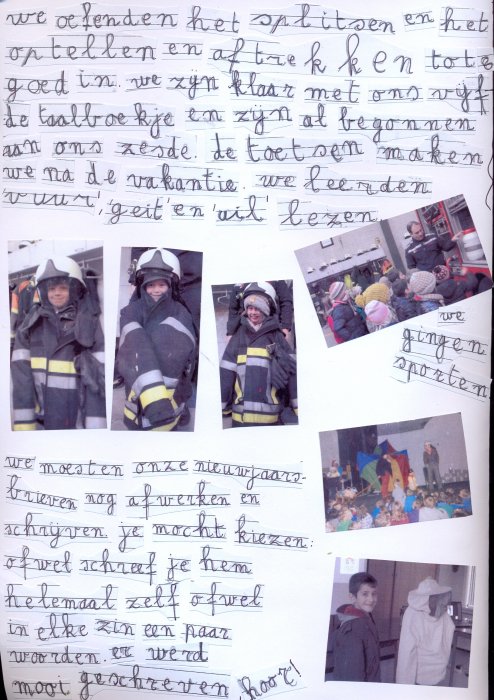 we oefenden het splitsen en het
optellen en aftrekken tot e
goed in. we zijn klaar met ons vijf-
de taalboekje en zijn al begonnen
aan ons zesde. de toetsen maken
we na de vakantie. we leerden
'vuur', 'geit' en 'uil' lezen.
we
gingen
sporten
we moesten onze nieuwjaars-
brieven nog afwerken en
schrijven. je mocht kiezen:
ofwel schreef je hem
helemaal zelf ofwel
in elke zin een paar
woorden. er werd
mooi geschreven, hoor!